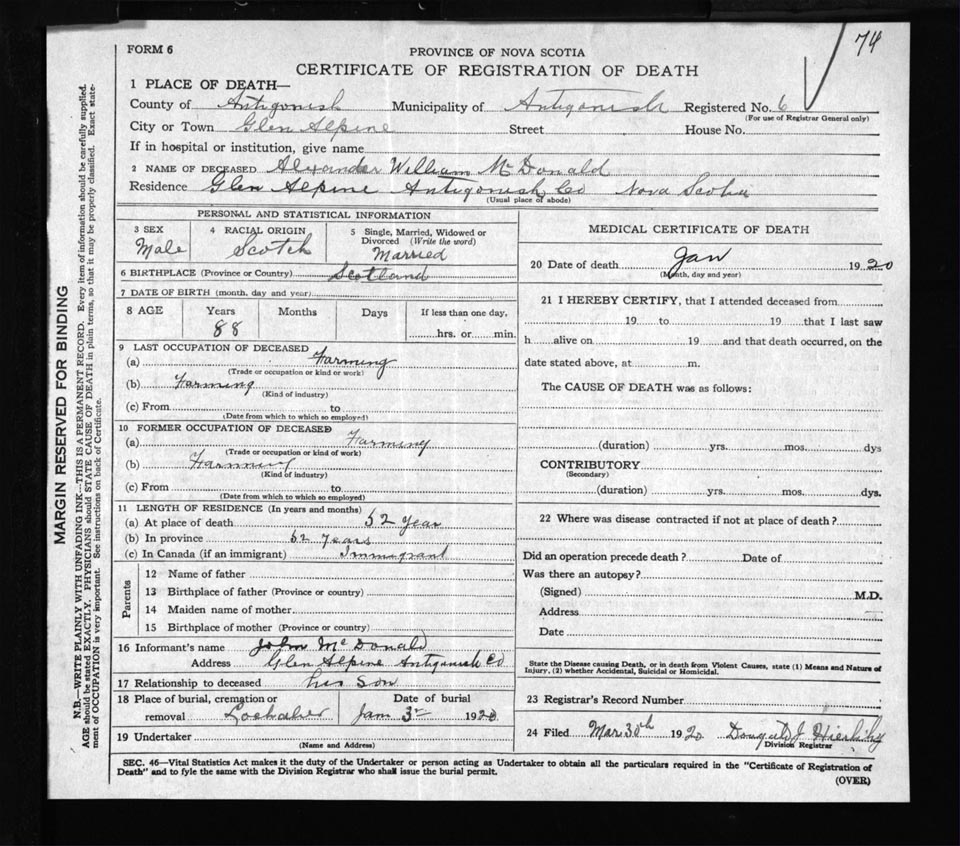 74
FORM 6
PROVINCE OF NOVA SCOTIA
CERTIFICATE OF REGISTRATION OF DEATH
1 PLACE OF DEATH—
County of Antigonish Municipality of Antigonish Registered No. 6
(For use of Registrar General only)
City or Town Glen Alpine Street House No.
If in hospital or institution, give name
2 NAME OF DECEASED Alexander William McDonald
Residence Glen Alpine Antigonish Co Nova Scotia
(Usual place of abode)
PERSONAL AND STATISTICAL INFORMATION
3 SEX Male
4 RACIAL ORIGIN Scotch
5 Single, Married, Widowed or Divorced (Write the word) Married
6 BIRTHPLACE (Province or Country) Scotland
7 DATE OF BIRTH (month, day and year)
8 AGE Years Months Days If less than one day,
88 hrs. or min.
9 LAST OCCUPATION OF DECEASED
(a) Farming
(Trade or occupation or kind or work)
(b) Farming
(Kind of industry)
(c) From to
(Date from which to which so employed)
10 FORMER OCCUPATION OF DECEASED
(a) Farming
(Trade or occupation or kind of work)
(b) Farming
(Kind of industry)
(c) From to
(Date from which to which so employed)
11 LENGTH OF RESIDENCE (In years and months)
(a) At place of death 52 Year
(b) In province 52 Years
(c) In Canada (if an immigrant) Immigrant
Parents
12 Name of father
13 Birthplace of father (Province or country)
14 Maiden name of mother
15 Birthplace of mother (Province or country)
16 Informant's name John McDonald
Address Glen Alpine Antigonish Co
17 Relationship to deceased his Son
18 Place of burial, cremation or Date of burial
removal Lochaber Jan 3rd 1920
19 Undertaker
(Name and Address)
MEDICAL CERTIFICATE OF DEATH
20 Date of death Jan 1920
(Month, day and year)
21 I HEREBY CERTIFY, that I attended deceased from
19 to 19 that I last saw
h alive on 19 and that death occurred, on the
date stated above, at m.
The CAUSE OF DEATH was as follows:
(duration) yrs. mos. dys
CONTRIBUTORY
(Secondary)
(duration) yrs. mos. dys.
22 Where was disease contracted if not at place of death?
Did an operation precede death? Date of
Was there an autopsy?
(Signed) M.D.
Address
Date
State the Disease causing Death, or in death from Violent Causes, state (1) Means and Nature of
Injury, (2) whether Accidental, Suicidal or Homicidal.
23 Registrar's Record Number
24 Filed Mar 30th 1920 Dougald J
Division Registrar
SEC. 46—Vital Statistics Act makes it the duty of the Undertaker or person acting as Undertaker to obtain all the particulars required in the "Certificate of Registration of
Death" and to fyle the same with the Division Registrar who shall issue the burial permit.
(OVER)
MARGIN RESERVED FOR BINDING
N.B.—WRITE PLAINLY WITH UNFADING INK—THIS IS A PERMANENT RECORD. Every item of information should be carefully supplied.
AGE should be stated EXACTLY. PHYSICIANS should STATE CAUSE OF DEATH in plain terms, so that it may be properly classified. Exact state-
ment of OCCUPATION is very important. See instructions on back of Certificate.